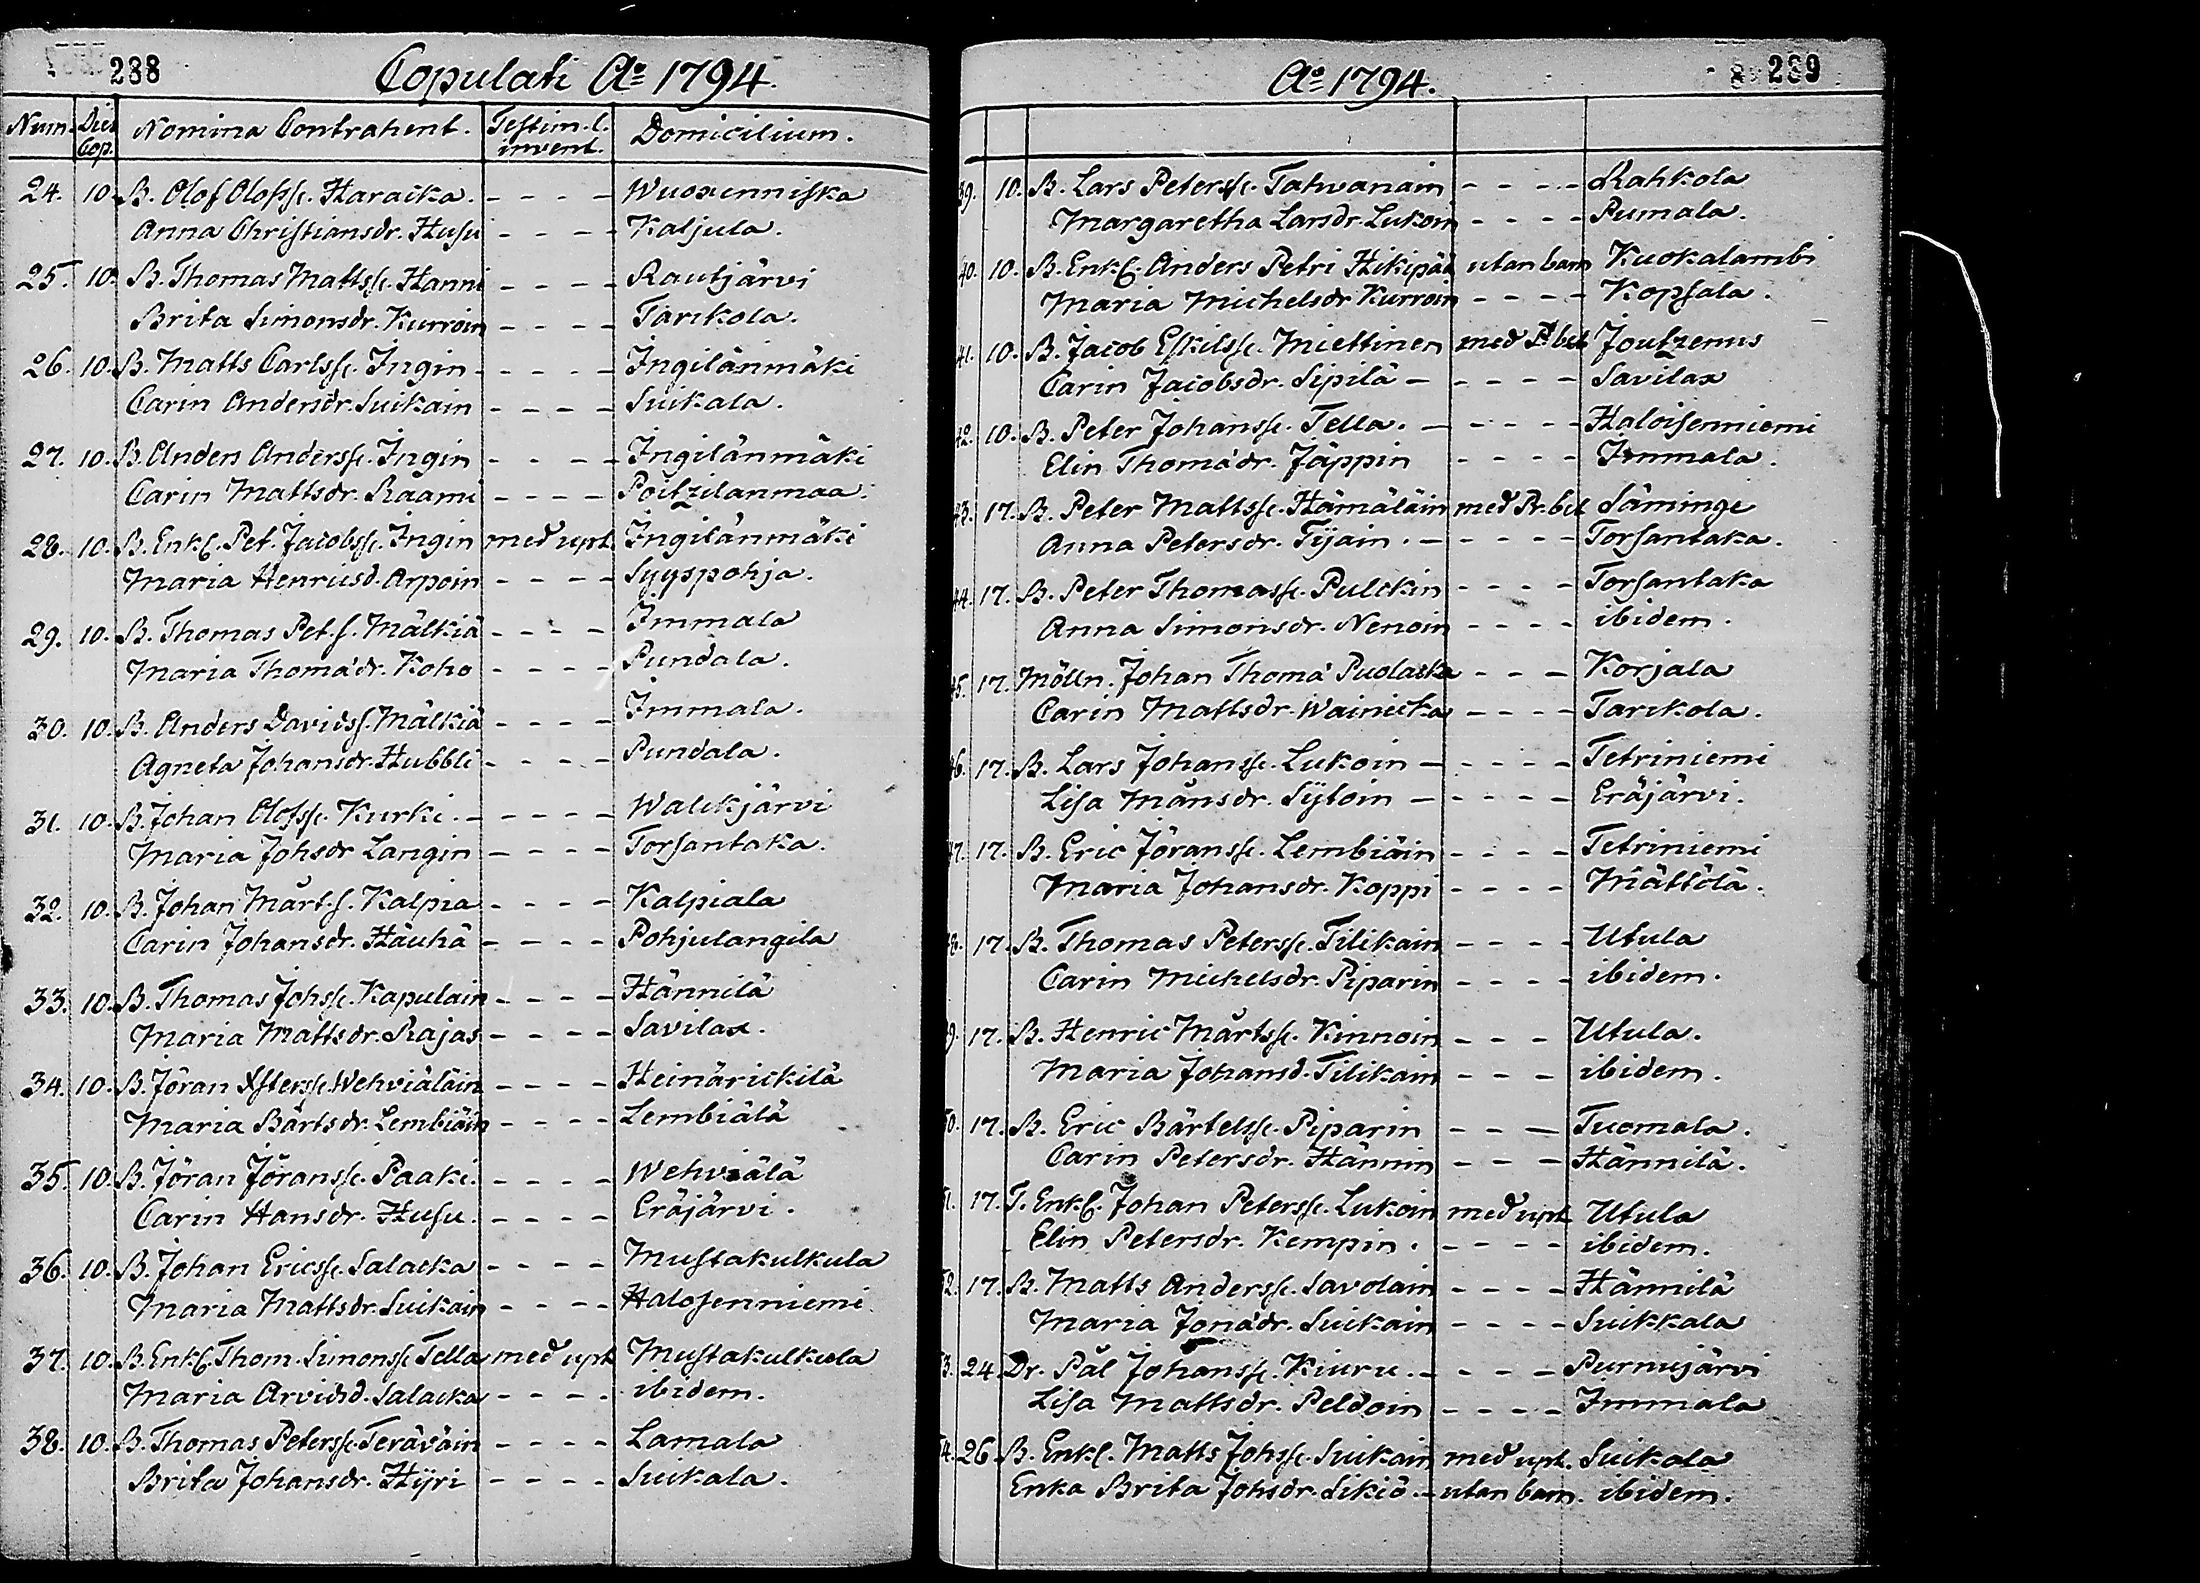 288
Copulati Ao 1794.
Num. Die Cop. Nomina Contrahent. Testim. l. invent. Domicilium.
24. 10. B. Olof Olofss. Haracka. - - - - Wuoxenniska
Anna Christiansdr. Husu - - - - Kaljula.
25. 10. B. Thomas Mattss. Hanni - - - - Rautjärvi
Brita Simonsdr. Kurroin - - - - Tarikola.
26. 10. B. Matts Carlss. Ingin - - - - Ingilänmäki
Carin Andersdr. Suikain - - - - Suikala.
27. 10. B. Anders Anderss. Ingin - - - - Ingilänmäki
Carin Mattsdr. Raami - - - - Poitzilanmaa.
28. 10. B. Enkl. Pet. Jacobss. Ingin med upt. Ingilänmäki
Maria Henricsd. Arpoin - - - - Syyspohja.
29. 10. B. Thomas Pet. s. Mälkiä - - - - Immala
Maria Thomadr. Koho - - - - Pundala.
30. 10. B. Anders Davids s. Mälkiä - - - - Immala.
Agneta Johansdr. Hubbli - - - - Pundala.
31. 10. B. Johan Olofss. Kurki. - - - - Walckjärvi
Maria Johsdr Langin - - - - Torsantaka.
32. 10. B. Johan Mårt. s. Kalpia - - - - Kalpiala
Carin Johansdr. Häuhä - - - - Pohjulangila
33. 10. B. Thomas Johss. Kapulain - - - - Hännilä
Maria Mattsdr. Rajas - - - - Savilax.
34. 10. B. Jöran Xsterss. Wehviäläin - - - - Heinärickilä
Maria Bärtsdr. Lembiäin - - - - Lembiälä
35. 10. B. Jöran Jöranss. Paaki. - - - - Wehviälä
Carin Hansdr. Husu. - - - - Eräjärvi.
36. 10. B. Johan Ericss. Salacka - - - - Mustakulkula
Maria Mattsdr. Suikain - - - - Halosenniemi.
37. 10. B. Enkl. Thom. Simonss. Tella med upt Mustakulkula
Maria Arvidsd. Salacka - - - - ibidem.
38. 10. B. Thomas Peterss. Teräväin - - - - Lamala
Brita Johansdr. Hyri - - - - Suikala.
289
Ao 1794.
39. 10. B. Lars Peterss. Tahvanain - - - - Rahkola
Margaretha Larsdr. Lukoin - - - - Pumala.
40. 10. B. Enkl. Anders Petri Hikipää utan barn Kuokalambi
Maria Michelsdr Kurroin - - - - Kopsala.
41. 10. B. Jacob Eskilss. Miettinen med Pr bet Joutzenus
Carin Jacobsdr. Sipilä - - - - - Savilax
42. 10. B. Peter Johanss. Tella. - - - - - Haloisenniemi
Elin Thomadr. Jäppin - - - - Immala.
43. 17. B. Peter Mattss. Hämäläin med Pr. bet Säminge
Anna Petersdr. Tijain. - - - - - Torsantaka.
44. 17. B. Peter Thomass. Pulckin - - - - Torsantaka
Anna Simonsdr. Nenoin - - - - ibidem.
45. 17. Mölln. Johan Thoma Puolacka - - - Korjala
Carin Mattsdr. Wainicka - - - - Tarikola.
46. 17. B. Lars Johanss. Lukoin - - - - - Tetriniemi
Lisa Månsdr. Syloin - - - - - Eräjärvi.
47. 17. B. Eric Jöranss. Lembiäin - - - - Tetriniemi
Maria Johansdr. Koppi - - - - Mättölä.
48. 17. B. Thomas Peterss. Tilikain - - - - Utula
Carin Michelsdr. Piparin - - - - ibidem.
49. 17. B. Henric Mårtss. Kinnoin - - - Utula.
Maria Johansd. Tilikain - - - ibidem.
50. 17. B. Eric Bärtelss. Piparin - - - Tuomala.
Carin Petersdr. Hännin - - - Hännilä.
51. 17. T. Enkl. Johan Peterss. Lukoin med upt Utula
Elin Petersdr. Kempin. - - - - ibidem.
52. 17. B. Matts Anderss. Savolain - - - - Hännilä
Maria Jonadr. Suikain - - - - Suikkala
53. 24. Dr. Pål Johanss. Kiuru. - - - - Purnujärvi
Lisa Mattsdr. Peldoin - - - - Immala
54. 26 B. Enkl. Matts Johss. Suikain med upt. Suikala
Enka Brita Johsdr. Likiö. - utan barn. ibidem.